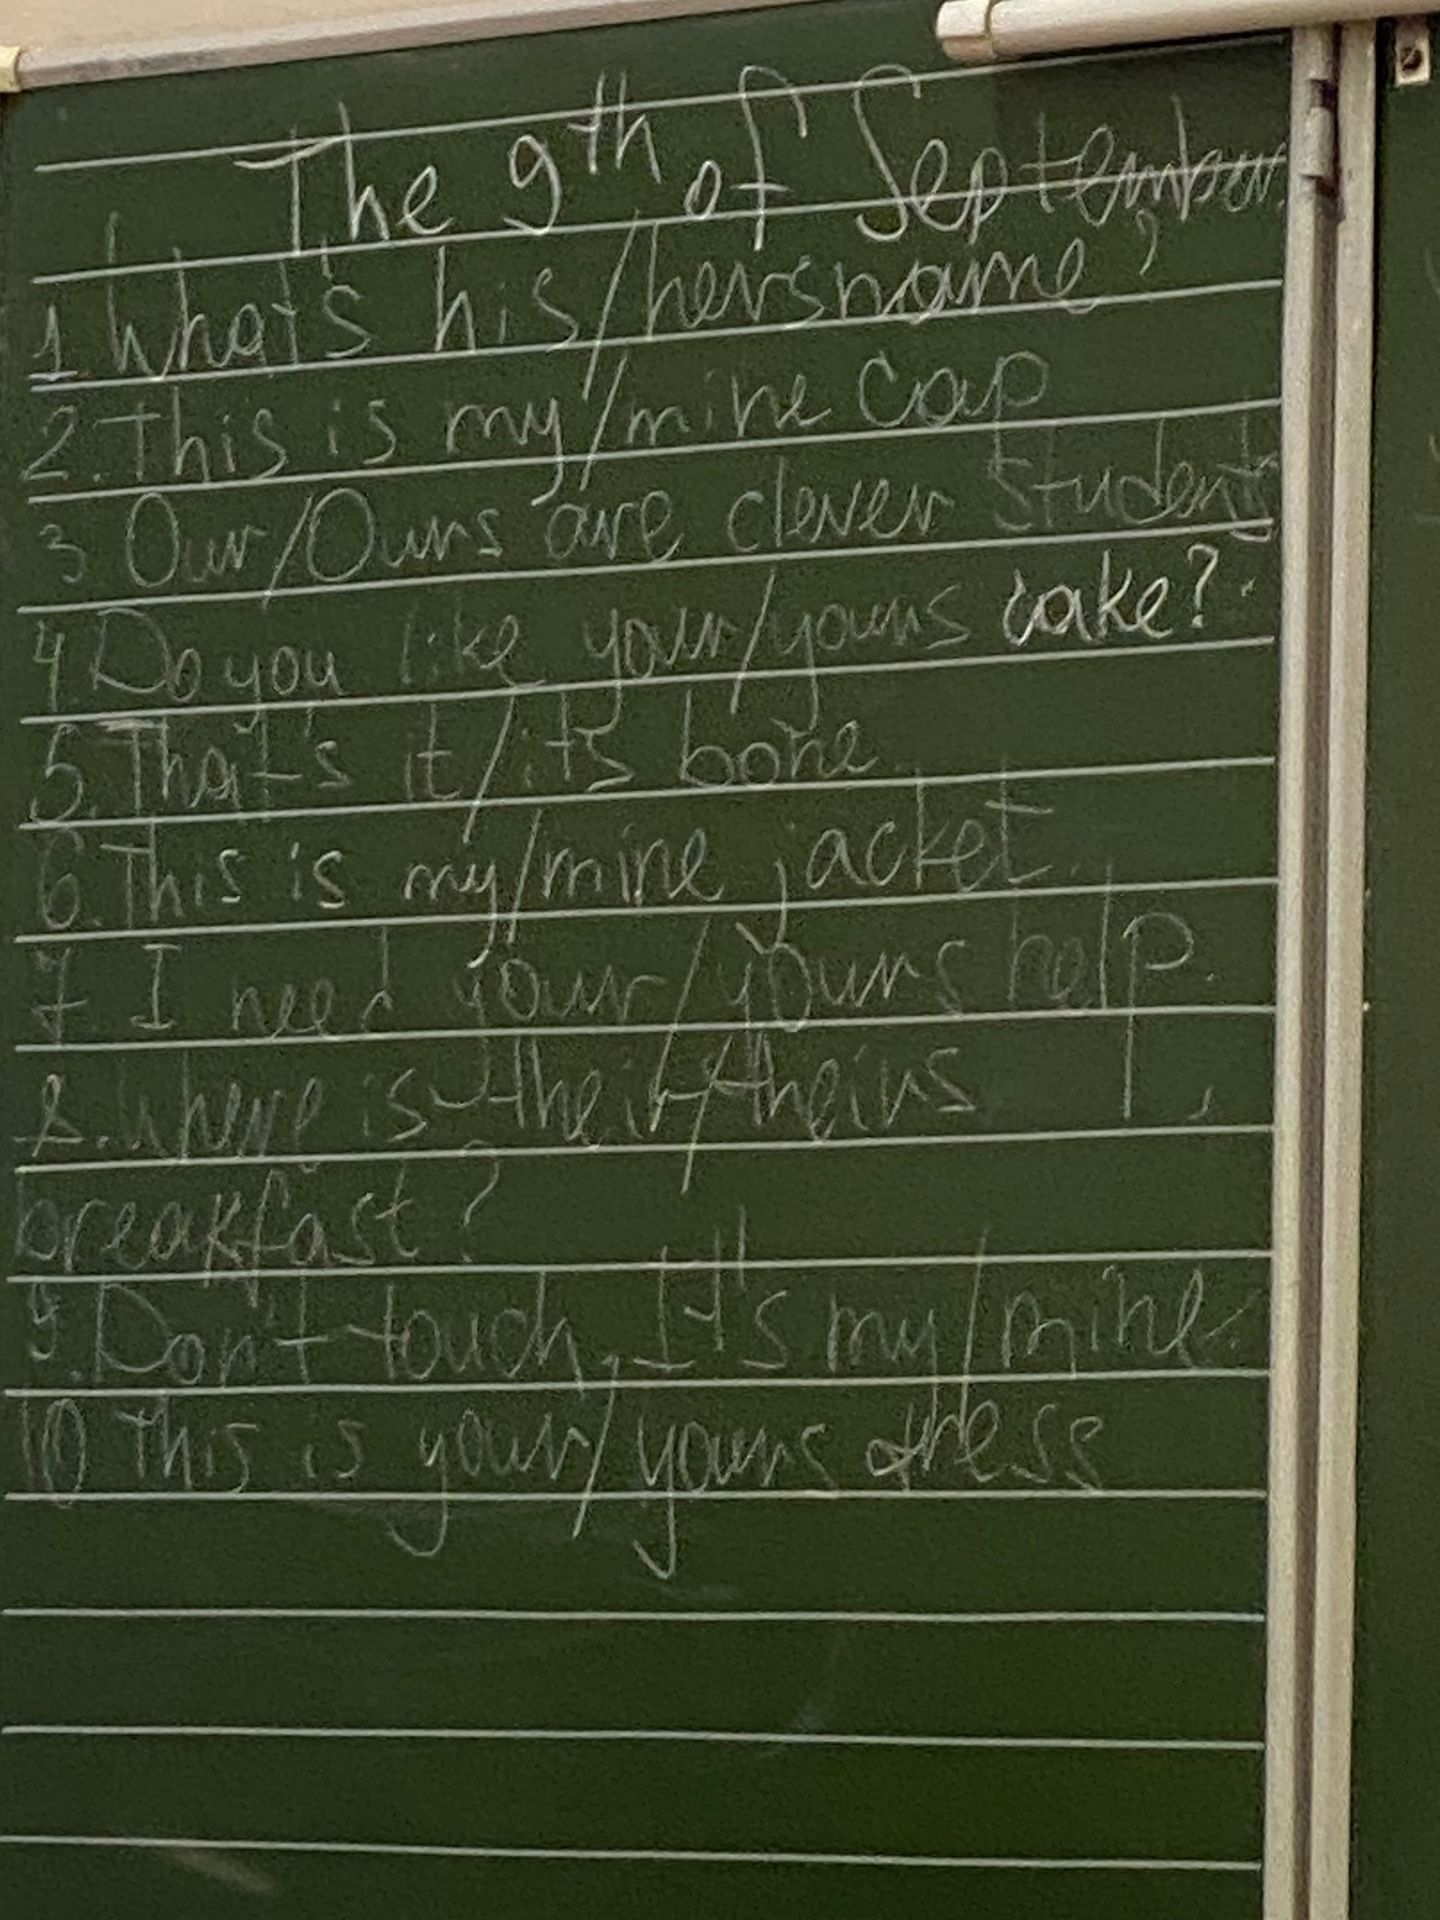 The 9th of September.
1. What's his/hers name?
2. This is my/mine cap
3 Our/Ours are clever students
4 Do you like your/yours cake?
5. That's it/its bone
6. This is my/mine jacket.
7 I need your/yours help.
8. Where is their/theirs
breakfast?
9. Don't touch, It's my/mine.
10 This is your/yours dress